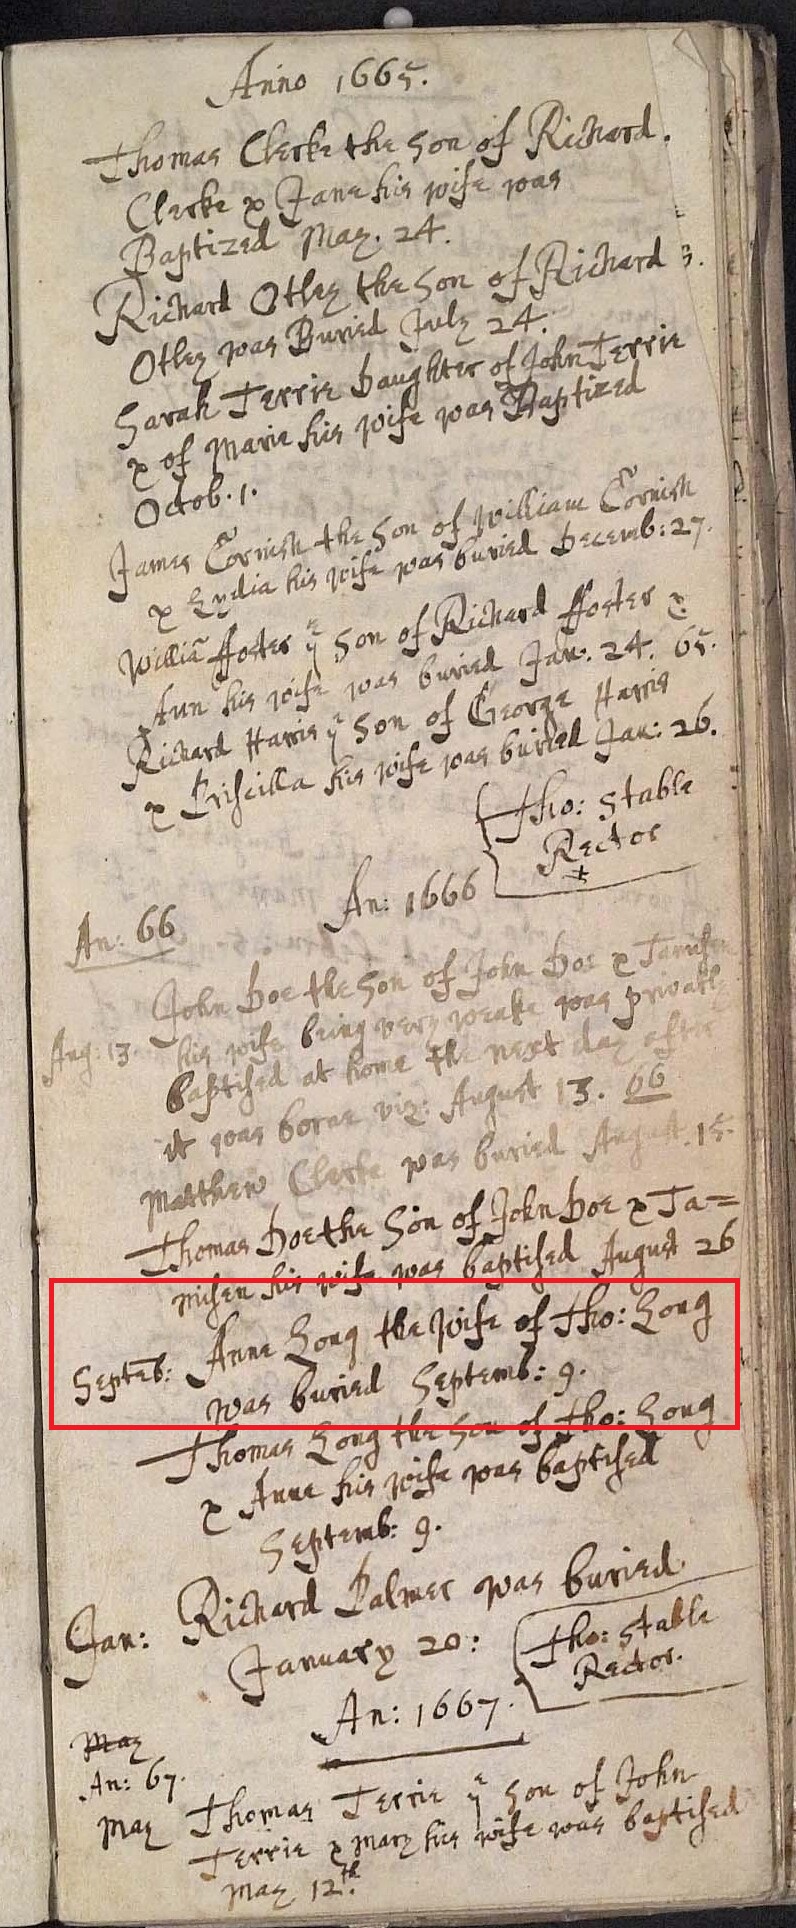 Anno 1665.
Thomas Clerke the Son of Richard.
Clerke & Jane his wife was
Baptized May. 24.
Richard Otley the Son of Richard
Otley was Buried July 24.
Sarah Terrie Daughter of John Terrie
& of Marie his wife was Baptized
Octob. 1.
James Cornish the Son of William Cornish
& Lydia his wife was buried Decemb: 27.
Williā ffoster yᵉ Son of Richard ffoster &
Ann his wife was buried Jan. 24. 65.
Richard Harris yᵉ Son of George Harris
& Priscilla his wife was buried Jan: 26.
Tho: Stable
Rector
An: 1666
An: 66
John Doe the Son of John Doe & Tamisen
Aug: 13. his wife being very weake was privatly
baptised at home the next day after
it was borne viz: August 13. 66
Matthew Clerke was buried August. 15.
Thomas Doe the Son of John Doe & Ta=
misen his wife was baptised August 26
Septēb: Anne Long the Wife of Tho: Long
was buried Septemb: 9.
Thomas Long the Son of Tho: Long
& Anne his wife was baptised
Septemb: 9.
Jan: Richard Palmer was buried
January 20:
Tho: Stable
Rector.
An: 1667.
May
An: 67.
May Thomas Terrie yᵉ Son of John
Terrie & Mary his wife was baptised
May 12.th